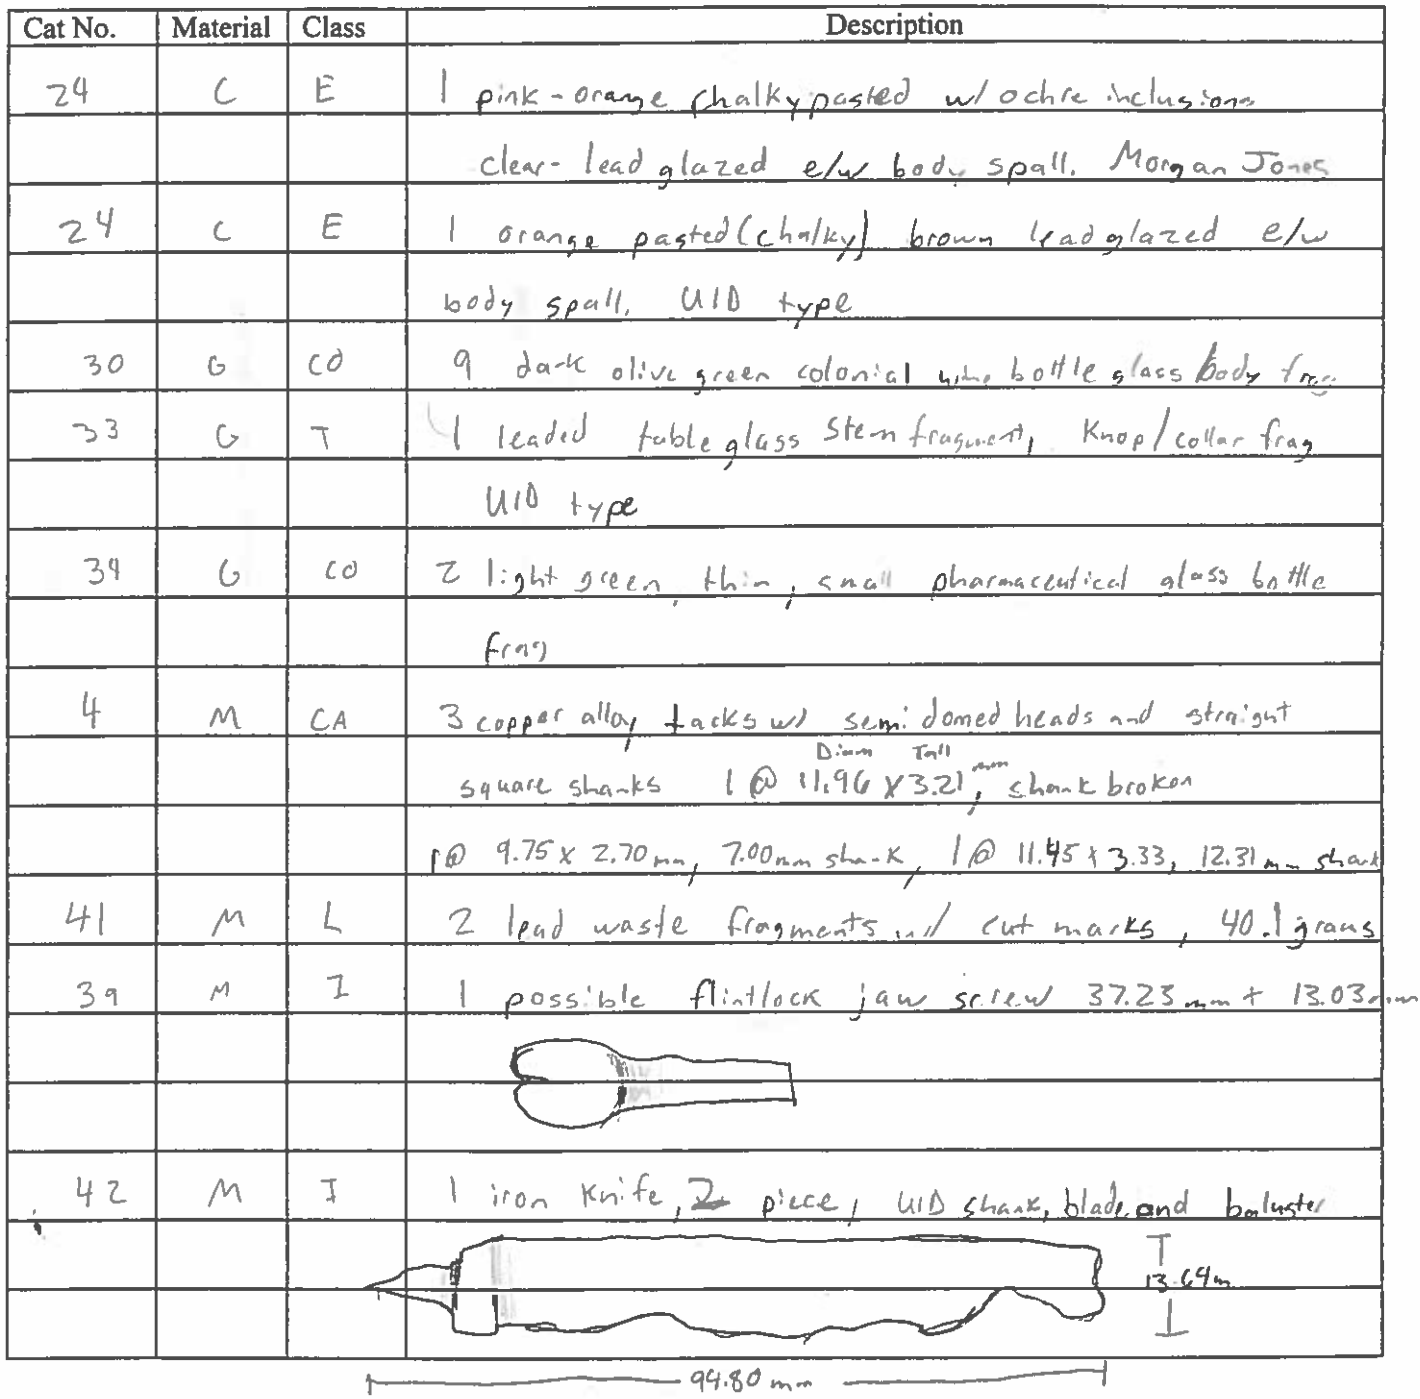 Cat No. Material Class Description
24 C E 1 pink-orange chalky pasted w/ ochre inclusions
clear-lead glazed e/w body spall. Morgan Jones
24 C E 1 orange pasted (chalky) brown lead glazed e/w
body spall. UID type
30 G CO 9 dark olive green colonial wine bottle glass body frag
33 G T 1 leaded table glass stem fragment, Knop/collar frag
UID type
34 G CO 2 light green, thin, small pharmaceutical glass bottle
frag
4 M CA 3 copper alloy tacks w/ semi domed heads and straight
Diam Tall
square shanks 1 @ 11.96 x 3.21 mm, shank broken
1 @ 9.75 x 2.70 mm, 7.00 mm shank, 1 @ 11.45 x 3.33, 12.31 mm shank
41 M L 2 lead waste fragments w/ cut marks, 40.1 grams
39 M I 1 possible flintlock jaw screw 37.23 mm + 13.03 mm
42 M I 1 iron knife, 2 piece, UID shank, blade and baluster
13.64m
94.80 mm